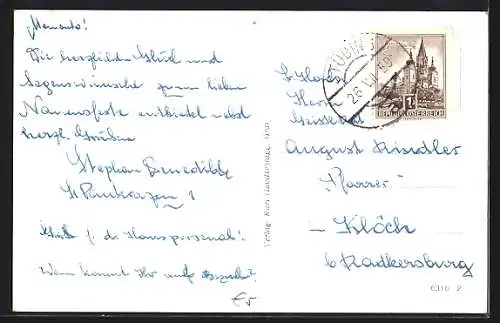 „Memento!
Die herzlichsten Glück und
Segenswünsche zum lieben
Namensfeste entbietet nebst
herzl. Grüßen
Stephan Benedikt
St. Pankrazen 1
Gruß f. d. Hauspersonal!
Wann kommt Ihr auf Besuch?
€5
Verlag: Kurt
26.
1S
REPUBLIK ÖSTERREICH
S. Hochw.
Herrn
Geistl. Rat
August Rindler
„Pfarrer“
– Klöch
b. Radkersburg
6316 2